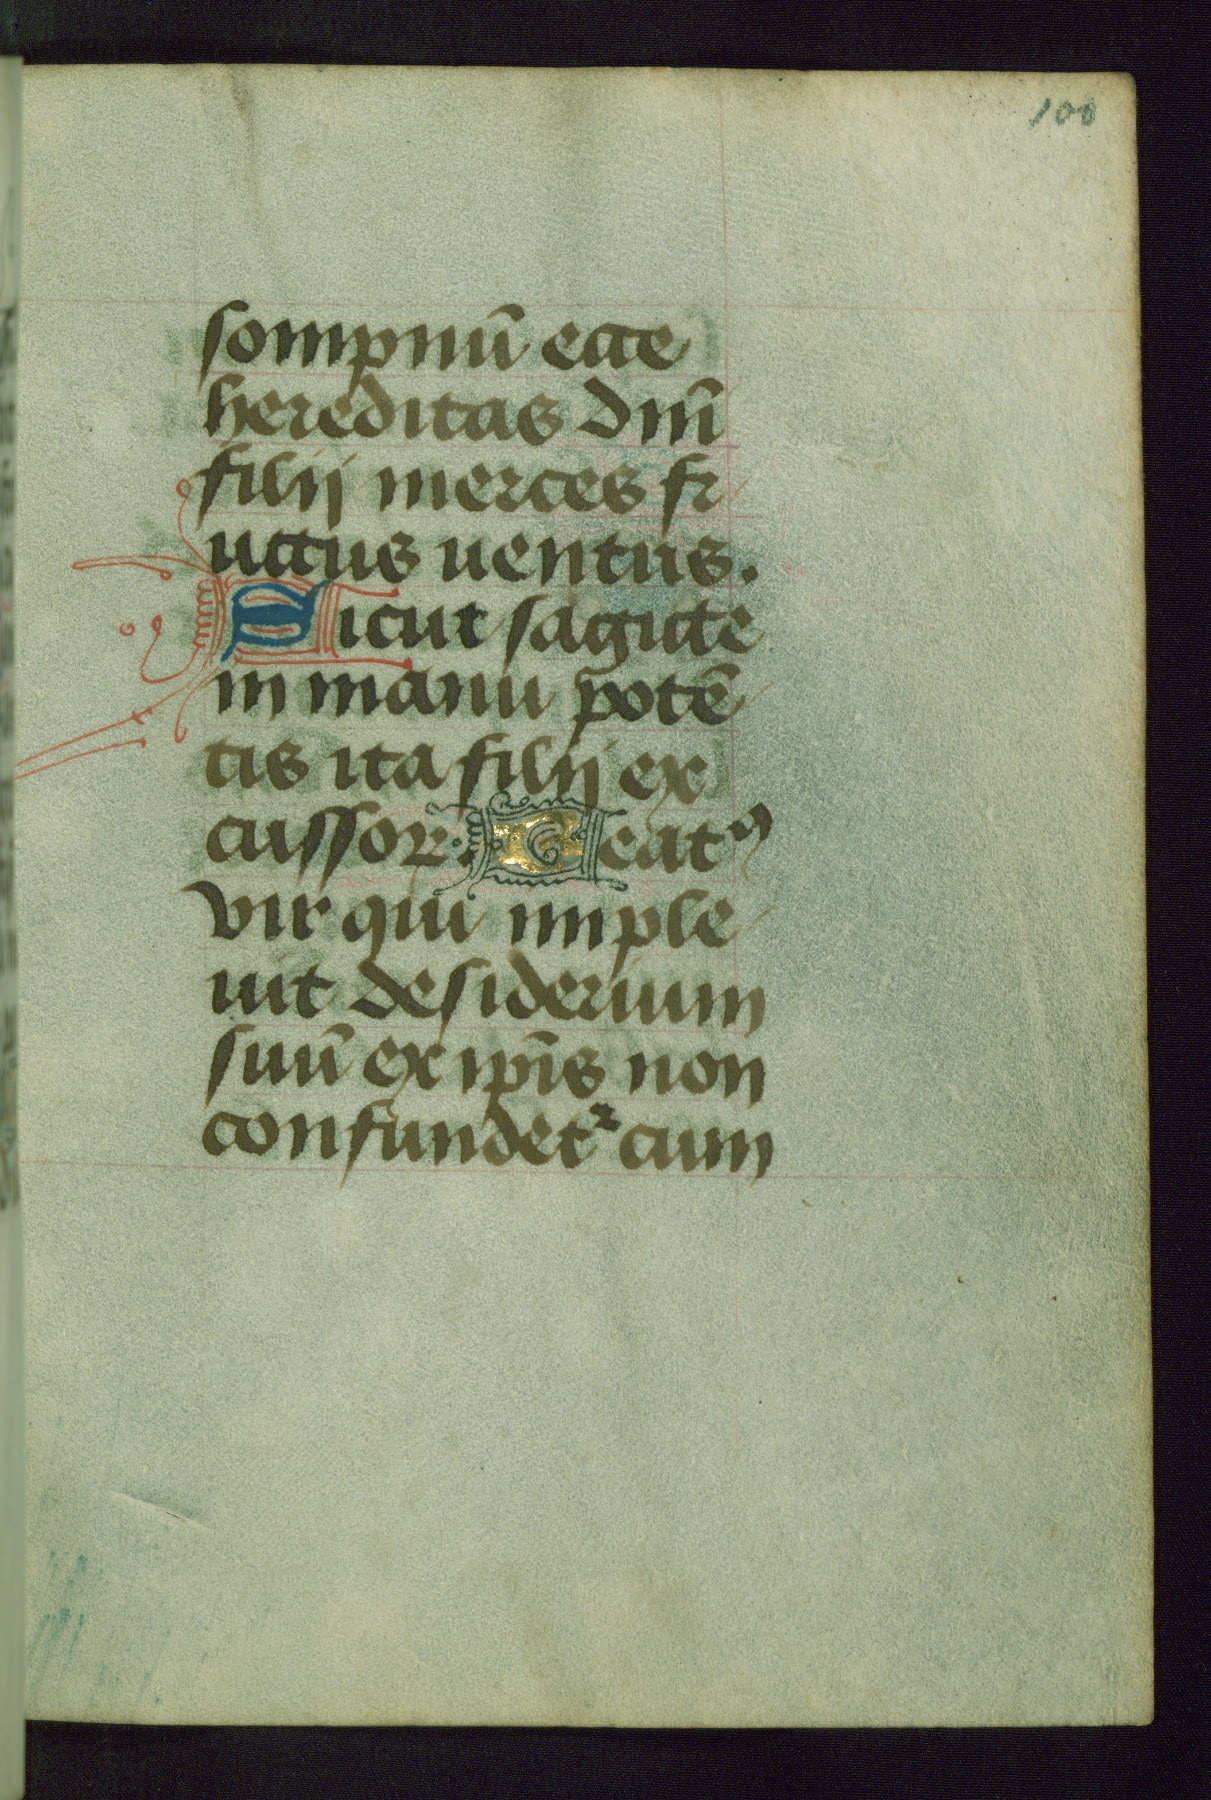 100
sompnū ecce
hereditas dnī
filij merces fr
uctus uentris.
Sicut sagitte
in manu potē
tis ita filij ex
cussoꝝ. Beatꝰ
vir qui imple
uit desiderium
suū ex ip̄is non
confundetᷣ cum